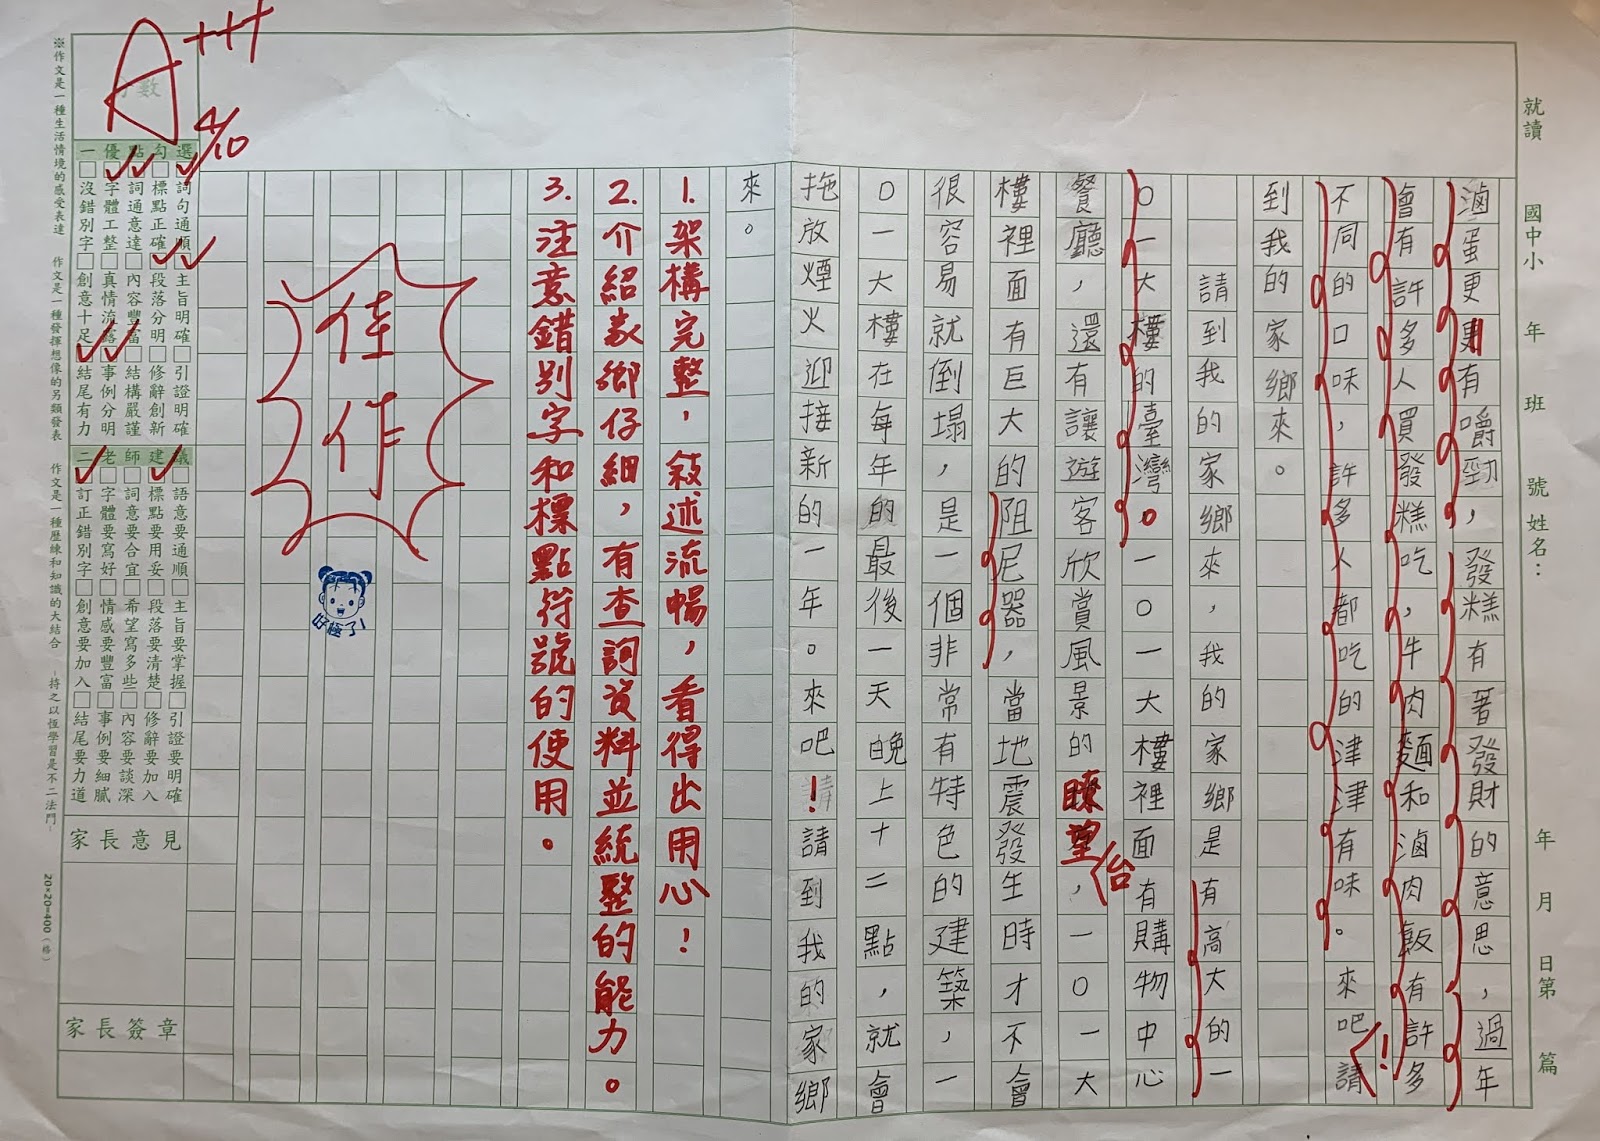 就讀 國中小 年 班 號 姓名： 年 月 日第 篇
滷蛋更更有嚼勁，發糕有著發財的意思，過年
會有許多人買發糕吃，牛肉麵和滷肉飯有許多
不同的口味，許多人都吃的津津有味。來吧！請
到我的家鄉來。
請到我的家鄉來，我的家鄉是有高大的一
○一大樓的臺灣。一○一大樓裡面有購物中心
餐廳，還有讓遊客欣賞風景的瞭望台，一○一大
樓裡面有巨大的阻尼器，當地震發生時才不會
很容易就倒塌，是一個非常有特色的建築，一
○一大樓在每年的最後一天晚上十二點，就會
拖放煙火迎接新的一年。來吧！請到我的家鄉
來。
1. 架構完整，敘述流暢，看得出用心！
2. 介紹家鄉仔細，有查詢資料並統整的能力。
3. 注意錯別字和標點符號的使用。
佳作
好極了！
A+++
4/10
分數
一優點勾選
詞句通順 主旨明確 引證明確
標點正確 段落分明 修辭創新
詞通意達 內容豐富 結構嚴謹
字體工整 真情流露 事例分明
沒錯別字 創意十足 結尾有力
二老師建議
語意要通順 主旨要掌握 引證要明確
標點要用妥 段落要清楚 修辭要加入
詞意要合宜 希望寫多些 內容要談深
字體要寫好 情感要豐富 事例要細膩
訂正錯別字 創意要加入 結尾要力道
家長意見
家長簽章
※作文是一種生活情境的感受表達 作文是一種發揮想像的另類發表 作文是一種歷練和知識的大結合 -持之以恆學習是不二法門-
20×20=400（格）